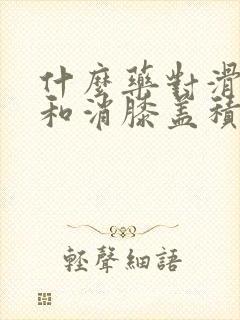 什麼藥對滑
和消膝蓋積
輕聲細語